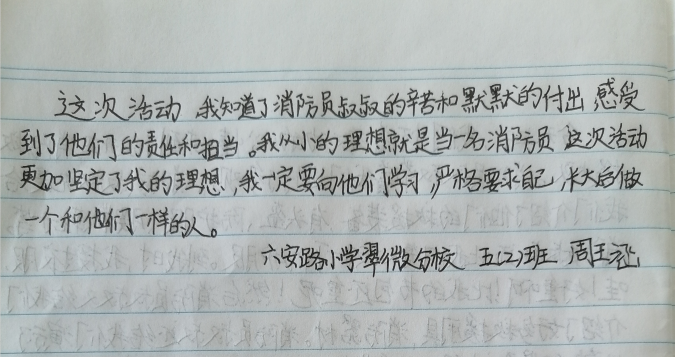 这次活动 我知道了消防员叔叔的辛苦和默默的付出 感受
到了他们的责任和担当。我从小的理想就是当一名消防员 这次活动
更加坚定了我的理想，我一定要向他们学习，严格要求自己，长大后做
一个和他们一样的人。
六安路小学翠微分校 五(2)班 周王